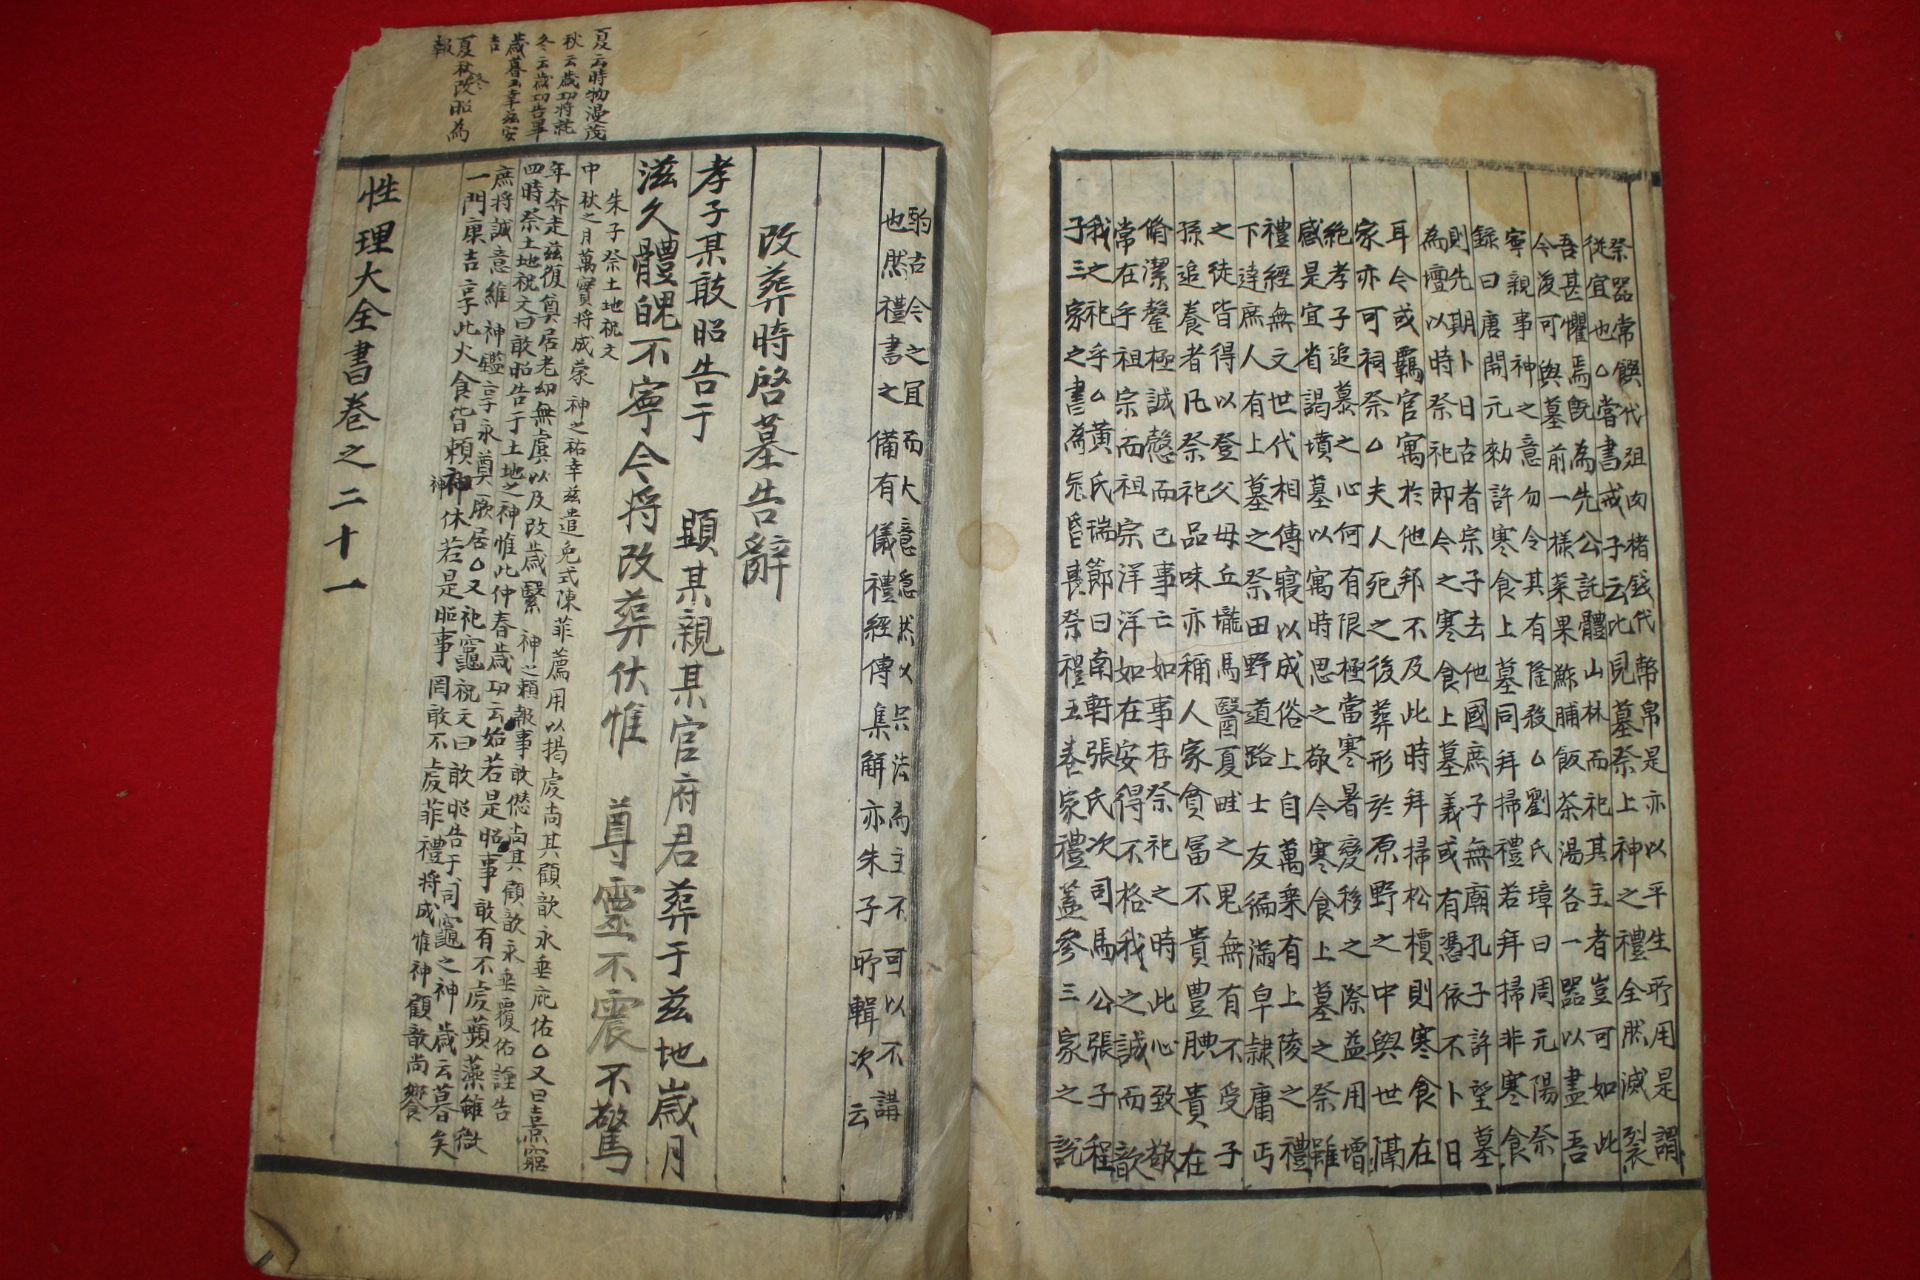 祭器常饌代俎肉楮錢代幣帛是亦以平生所用是謂
從宜也△當書戒子云比見墓祭土神之禮全然滅裂
吾甚懼焉旣為先公託體山林而祀其主者豈可如此
今後可與墓前一樣菜果鮓脯飯茶湯各一器以盡吾
寧親事神之意勿令其有隆殺△劉氏璋曰周元陽祭
錄曰唐開元勅許寒食上墓同拜掃禮若拜掃非寒食
則先期卜日古者宗子去他國庶子無廟孔子許望墓
為壇以時祭祀即今之寒食上墓義或有憑依不卜日
耳今或羈官寓於他邦不及此時拜掃松檟則寒食在
家亦可祠祭△夫人死之後葬形於原野之中與世隔
絶孝子追慕之心何有限極當寒暑變移之際益用增
感是宜省謁墳墓以寓時思之敬今寒食上墓之祭雖
禮經無文世代相傳寢以成俗上自萬乘有上陵之禮
下逹庶人有上墓之祭田野道路士友徧滿皁隷庸丐
之徒皆得以登父母丘壠馬醫夏畦之鬼無有不受子
孫追養者凡祭祀品味亦稱人家貧冨不貴豊腆貴在
脩潔罄極誠慤而已事亡如事存祭祀之時此心致敬
常在乎祖宗而祖宗洋洋如在安得不格我之誠而歆
我之祀乎△黃氏瑞節曰南軒張氏次司馬公張子程
子三家之書為冠昏喪祭禮五卷家禮蓋參三家之說
酌古今之宜而大意隱然以宗法為主不可以不講
也然禮書之備有儀禮經傳集解亦朱子所輯次云
改葬時啓墓告辭
孝子某敢昭告于 顯某親某官府君葬于玆地歲月
滋久體魄不寧今將改葬伏惟 尊靈不震不驚
朱子祭土地祝文
中秋之月萬寶將成蒙 神之祐幸玆遣免式陳菲薦用以揭虔尚其顧歆永垂庇佑△又曰熹窮
年奔走玆復奠居老幼無虞以及改歲繄 神之賴報事敢愆尚其顧歆永垂覆佑謹告
四時祭土地祝文曰敢昭告于土地之神惟此仲春歲功云始若是昭事敢有不虔蘋藻雖微
庶將誠意維 神鑑享永奠厥居△又祀竈祝文曰敢昭告于司竈之神 歲云暮矣
一門康吉享此火食皆頼神休若是昭事罔敢不虔菲禮將成惟神顧歆尚饗
性理大全書卷之二十一
夏云時物漫茂
秋云歲功將就
冬云歲功告畢
歲暮云幸玆安
吉
夏秋冬改昭為
報